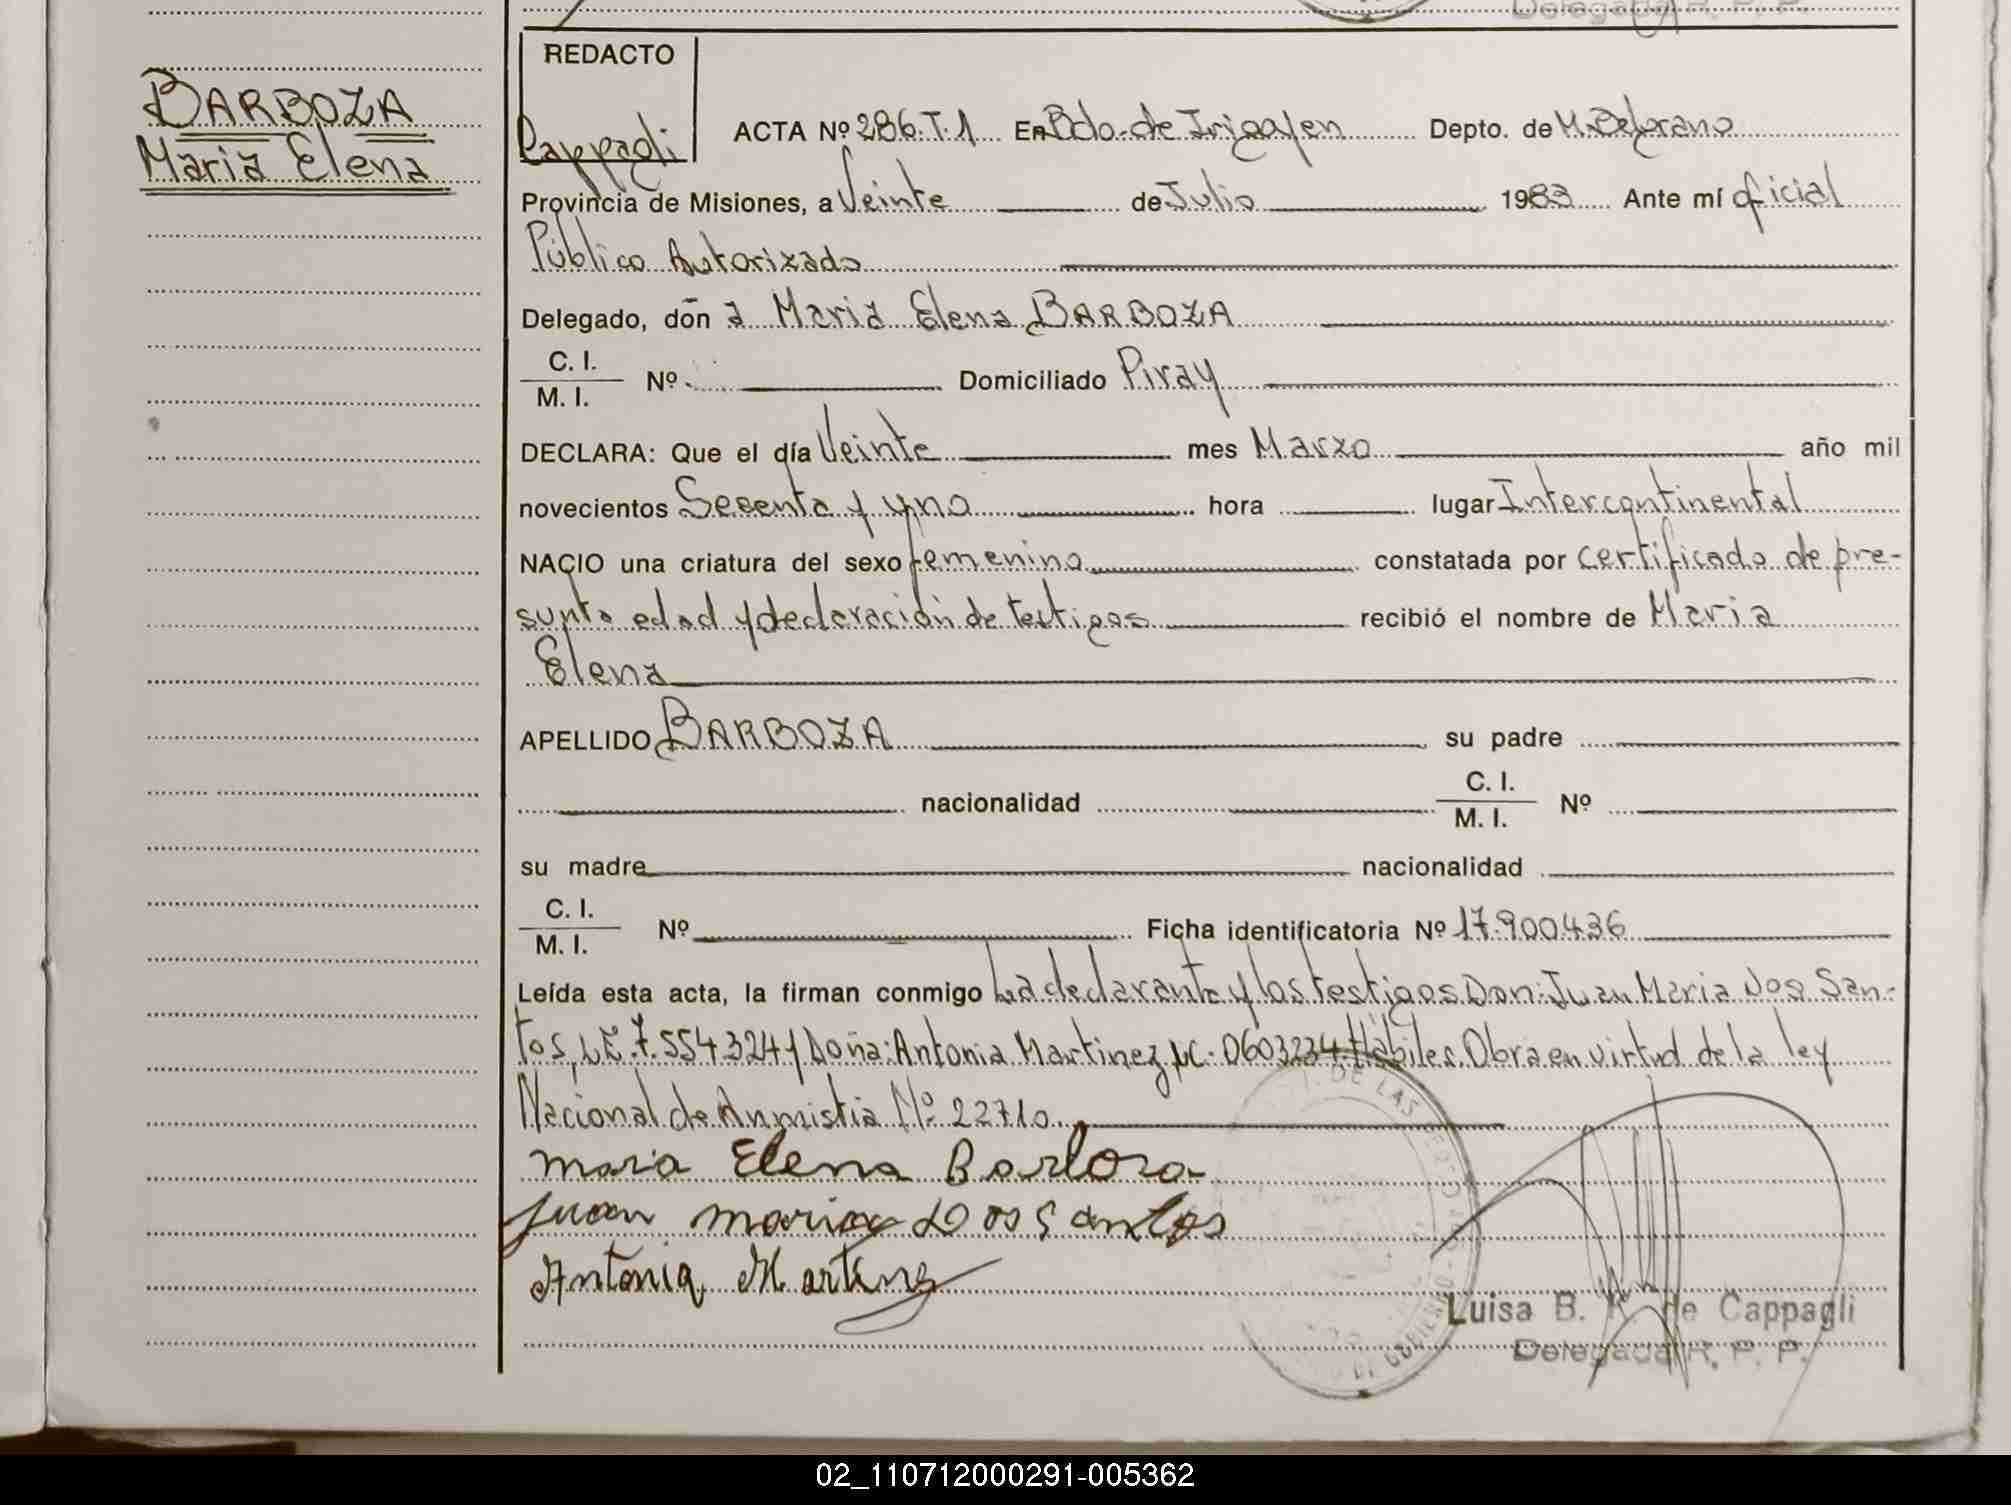 Delegada R. P. P.
REDACTO
Cappagli
BARBOZA
Maria Elena
ACTA Nº 286.T.1 En Bdo. de Irigoyen Depto. de M. Belgrano
Provincia de Misiones, a Veinte de Julio 1983 Ante mí oficial
Público Autorizado
Delegado, doña Maria Elena BARBOZA
C. I.
M. I. Nº Domiciliado Piray
DECLARA: Que el día Veinte mes Marzo año mil
novecientos Sesenta y uno hora lugar Intercontinental
NACIO una criatura del sexo femenino constatada por certificado de pre-
sunta edad y declaración de testigos recibió el nombre de Maria
Elena
APELLIDO BARBOZA su padre
nacionalidad C. I.
M. I. Nº
su madre nacionalidad
C. I.
M. I. Nº Ficha identificatoria Nº 17.900.436
Leída esta acta, la firman conmigo La declarante y los testigos Don: Juan Maria Dos San-
tos, LE. 7.554.324 y Doña: Antonia Martinez, LC. 0603234. Hábiles. Obra en virtud de la ley
Nacional de Anmistia Nº 22710.
maria Elena Barboza
Juan maria Dos Santos
Antonia Martinez
DE LAS
Luisa B. de Cappagli
Delegada R. P. P.
02_110712000291-005362